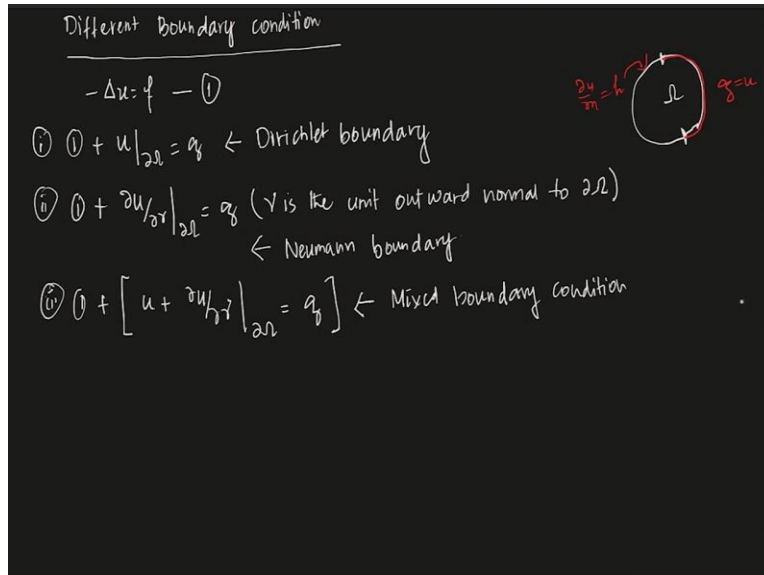 Different Boundary condition
-Δu=f — ①
ⓘ ① + u|∂Ω = g ← Dirichlet boundary
ⓘⓘ ① + ∂u/∂γ|∂Ω = g (γ is the unit outward normal to ∂Ω)
← Neumann boundary
ⓘⓘⓘ ① + [u + ∂u/∂γ|∂Ω = g] ← Mixed boundary condition
∂u/∂n = h
Ω
g=u